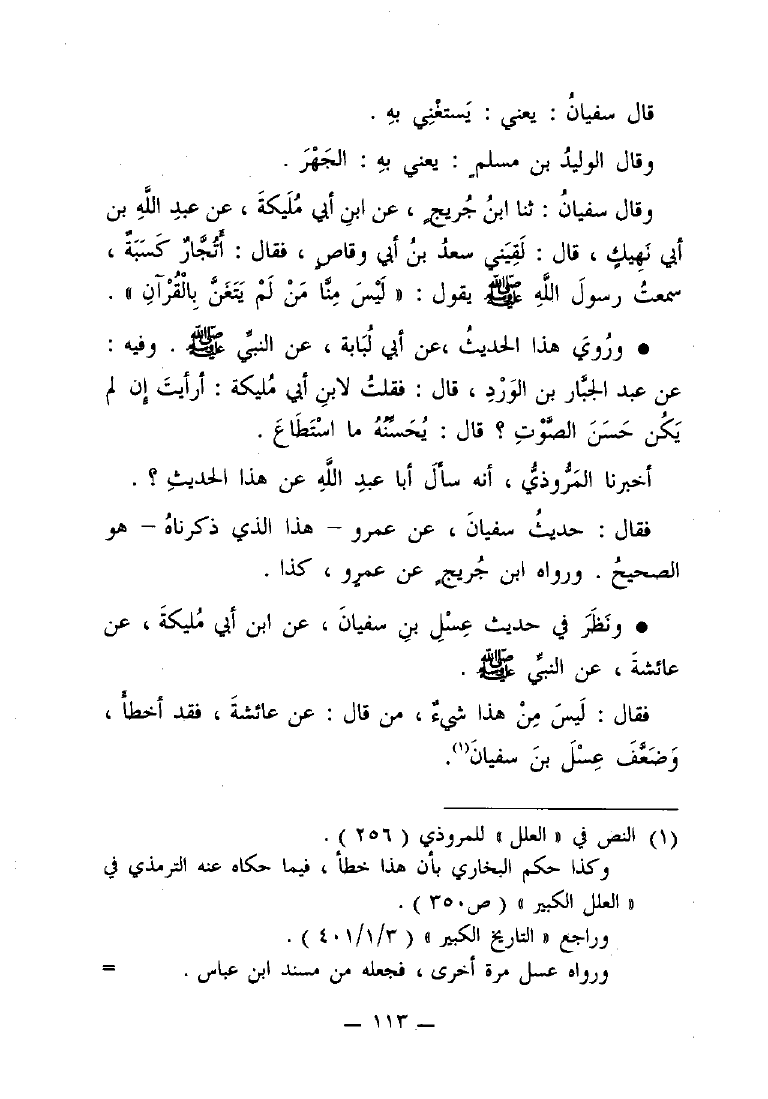 قال سفيانُ : يعني : يَستغْنِي بهِ .
وقال الوليدُ بن مسلمٍ : يعني بهِ : الجَهْرَ .
وقال سفيانُ : ثنا ابنُ جُريجٍ ، عن ابنِ أبي مُلَيكةَ ، عن عبدِ اللَّهِ بن
أبي نَهِيكٍ ، قال : لَقِيَني سعدُ بنُ أبي وقاصٍ ، فقال : أَتُجَّارٌ كَسَبَةٌ ،
سمعتُ رسولَ اللَّهِ ﷺ يقول : « لَيْسَ مِنَّا مَنْ لَمْ يَتَغَنَّ بِالْقُرْآنِ » .
● ورُوِيَ هذا الحديثُ ،عن أبي لُبَابة ، عن النبيِّ ﷺ . وفيه :
عن عبد الجبَّار بن الوَرْدِ ، قال : فقلتُ لابنِ أبي مليكة : أرأيتَ إن لم
يَكُن حَسَنَ الصَّوْتِ ؟ قال : يُحَسِّنُهُ ما اسْتَطَاعَ .
أخبرنا المَرُّوذيُّ ، أنه سألَ أبا عبدِ اللَّهِ عن هذا الحديثِ ؟ .
فقال : حديثُ سفيانَ ، عن عمرو – هذا الذي ذكرناهُ – هو
الصحيحُ . ورواه ابن جُريجٍ عن عمرٍو ، كذا .
● ونَظَرَ في حديث عِسْلِ بنِ سفيانَ ، عن ابن أبي مُليكةَ ، عن
عائشةَ ، عن النبيِّ ﷺ .
فقال : لَيسَ مِنْ هذا شيءٌ ، من قال : عن عائشةَ ، فقد أخطأَ ،
وَضَعَّفَ عِسْلَ بنَ سفيانَ(١).
(١) النص في « العلل » للمروذي ( ٢٥٦ ) .
وكذا حكم البخاري بأن هذا خطأ ، فيما حكاه عنه الترمذي في
« العلل الكبير » ( ص٣٥٠ ) .
وراجع « التاريخ الكبير » ( ٤٠١/١/٣ ) .
ورواه عسل مرة أخرى ، فجعله من مسند ابن عباس . =
– ١١٣ –